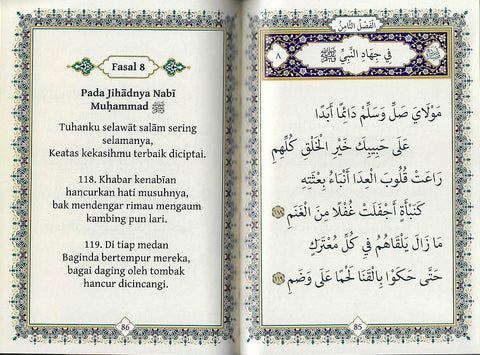 Fasal 8
Pada Jihādnya Nabī
Muḥammad ﷺ
Tuhanku selawāt salām sering
selamanya,
Keatas kekasihmu terbaik diciptai.
118. Khabar kenabīan
hancurkan hati musuhnya,
bak mendengar rimau mengaum
kambing pun lari.
119. Di tiap medan
Baginda bertempur mereka,
bagai daging oleh tombak
hancur dicincangi.
86
الْفَصْلُ الثَّامِنُ
٨
فِي جِهَادِ النَّبِيِّ ﷺ
مَوْلَايَ صَلِّ وَسَلِّمْ دَائِمًا أَبَدًا
عَلَى حَبِيبِكَ خَيْرِ الْخَلْقِ كُلِّهِمِ
رَاعَتْ قُلُوبَ الْعِدَا أَنْبَاءُ بِعْثَتِهِ
كَنَبْأَةٍ أَجْفَلَتْ غُفْلًا مِنَ الْغَنَمِ ١١٨
مَا زَالَ يَلْقَاهُمُ فِي كُلِّ مُعْتَرَكٍ
حَتَّى حَكَوْا بِالْقَنَا لَحْمًا عَلَى وَضَمِ ١١٩
85